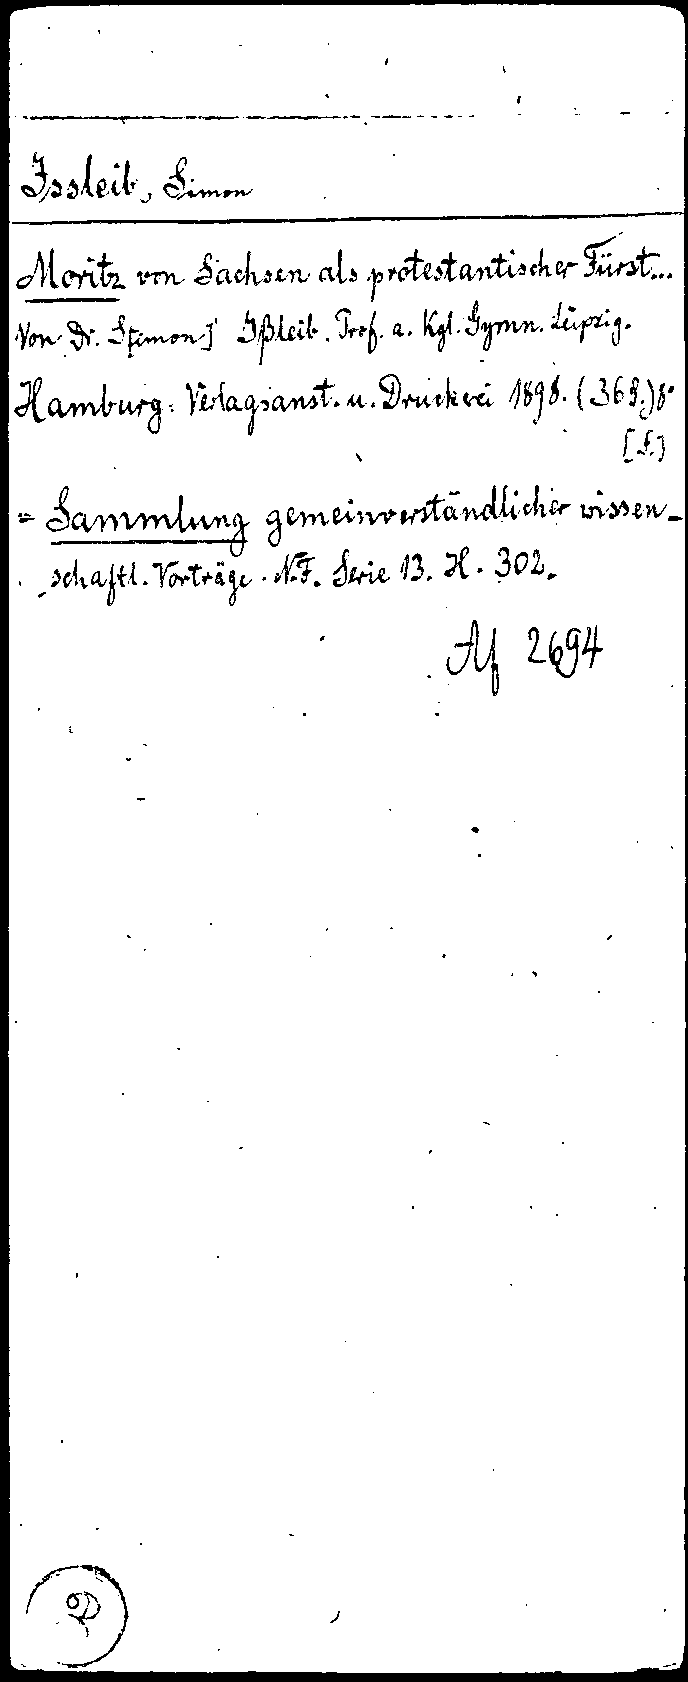 Issleib, Simon
Moritz von Sachsen als protestantischer Fürst...
Von Dr. S[imon] Ißleib. Prof. a. Kgl. Gymn. Leipzig.
Hamburg: Verlagsanst. u. Druckerei 1898. (36 S.) 8°
= Sammlung gemeinverständlicher wissen-
schaftl. Vorträge. N.F. Serie 13. H. 302.
Af 2694